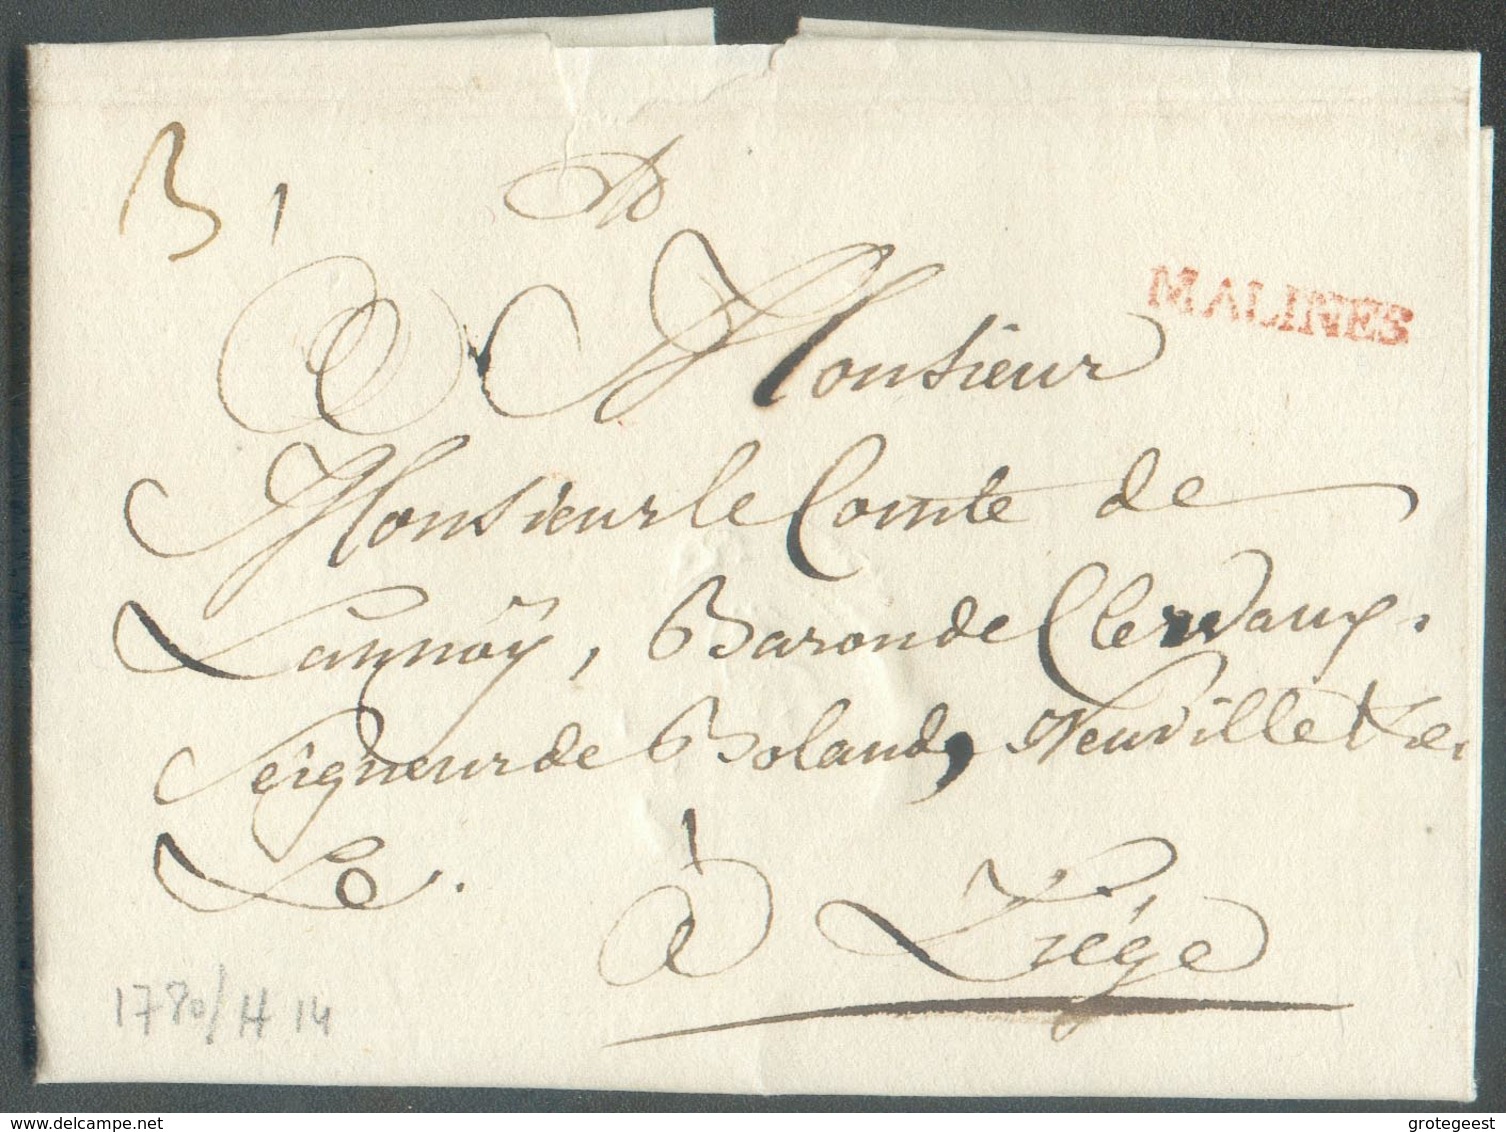 3
A Monsieur
MALINES
Monsieur le Comte de
Lannoÿ, Baron de Clervaux,
Seigneur de Boland, Neuville &c.
&c.
à Liége
1780/H 14
delcampe.net
grotegeest